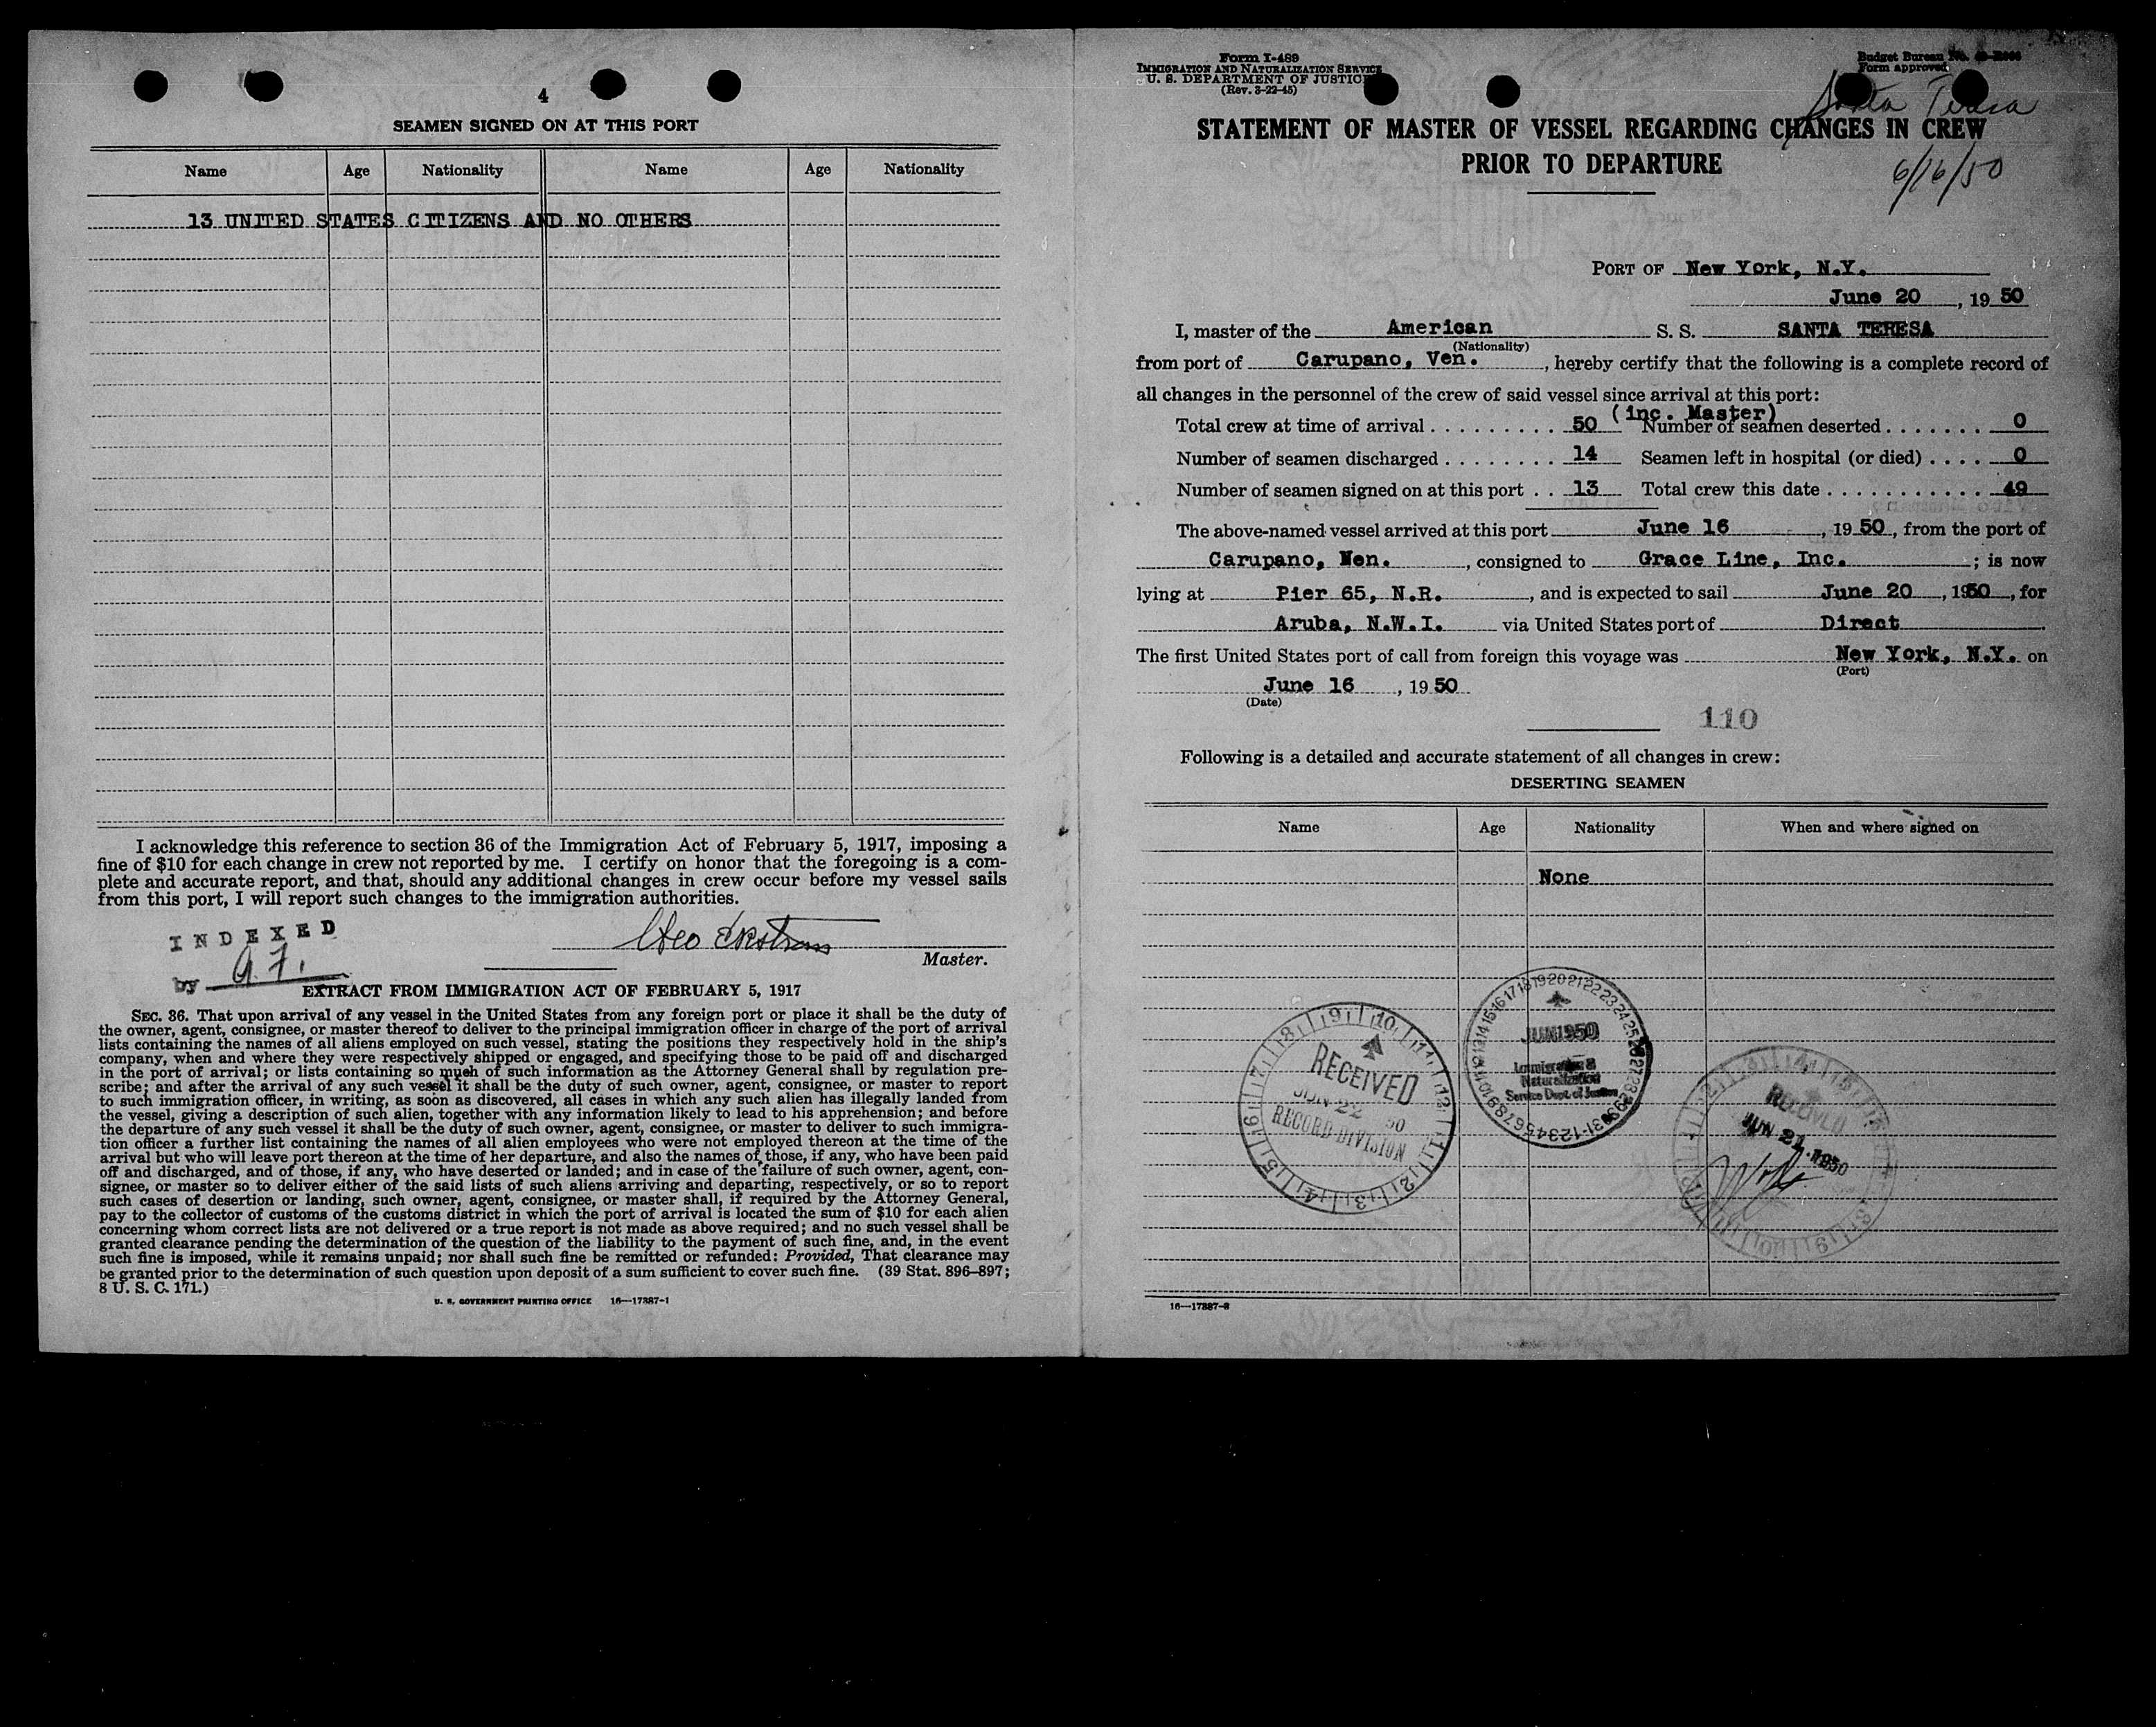 4
SEAMEN SIGNED ON AT THIS PORT
Name Age Nationality Name Age Nationality
13 UNITED STATES CITIZENS AND NO OTHERS
I acknowledge this reference to section 36 of the Immigration Act of February 5, 1917, imposing a
fine of $10 for each change in crew not reported by me. I certify on honor that the foregoing is a com-
plete and accurate report, and that, should any additional changes in crew occur before my vessel sails
from this port, I will report such changes to the immigration authorities.
INDEXED
Geo Ekstrom
Master.
by
EXTRACT FROM IMMIGRATION ACT OF FEBRUARY 5, 1917
SEC. 36. That upon arrival of any vessel in the United States from any foreign port or place it shall be the duty of
the owner, agent, consignee, or master thereof to deliver to the principal immigration officer in charge of the port of arrival
lists containing the names of all aliens employed on such vessel, stating the positions they respectively hold in the ship's
company, when and where they were respectively shipped or engaged, and specifying those to be paid off and discharged
in the port of arrival; or lists containing so much of such information as the Attorney General shall by regulation pre-
scribe; and after the arrival of any such vessel it shall be the duty of such owner, agent, consignee, or master to report
to such immigration officer, in writing, as soon as discovered, all cases in which any such alien has illegally landed from
the vessel, giving a description of such alien, together with any information likely to lead to his apprehension; and before
the departure of any such vessel it shall be the duty of such owner, agent, consignee, or master to deliver to such immigra-
tion officer a further list containing the names of all alien employees who were not employed thereon at the time of the
arrival but who will leave port thereon at the time of her departure, and also the names of those, if any, who have been paid
off and discharged, and of those, if any, who have deserted or landed; and in case of the failure of such owner, agent, con-
signee, or master so to deliver either of the said lists of such aliens arriving and departing, respectively, or so to report
such cases of desertion or landing, such owner, agent, consignee, or master shall, if required by the Attorney General,
pay to the collector of customs of the customs district in which the port of arrival is located the sum of $10 for each alien
concerning whom correct lists are not delivered or a true report is not made as above required; and no such vessel shall be
granted clearance pending the determination of the question of the liability to the payment of such fine, and, in the event
such fine is imposed, while it remains unpaid; nor shall such fine be remitted or refunded: Provided, That clearance may
be granted prior to the determination of such question upon deposit of a sum sufficient to cover such fine. (39 Stat. 896–897;
8 U. S. C. 171.)
U. S. GOVERNMENT PRINTING OFFICE 16—17387-1
Form I-489
IMMIGRATION AND NATURALIZATION SERVICE
U. S. DEPARTMENT OF JUSTICE
(Rev. 3-22-45)
Budget Bureau No.
Form approved
Santa Teresa
STATEMENT OF MASTER OF VESSEL REGARDING CHANGES IN CREW
PRIOR TO DEPARTURE
6/16/50
PORT OF New York, N.Y.
June 20, 1950
I, master of the American S. S. SANTA TERESA
(Nationality)
from port of Carupano, Ven., hereby certify that the following is a complete record of
all changes in the personnel of the crew of said vessel since arrival at this port:
(inc. Master)
Total crew at time of arrival . . . . . . . . . . 50 Number of seamen deserted . . . . . . . 0
Number of seamen discharged . . . . . . . . 14 Seamen left in hospital (or died) . . . . 0
Number of seamen signed on at this port . . 13 Total crew this date . . . . . . . . . . . . 49
The above-named vessel arrived at this port June 16, 1950, from the port of
Carupano, Nen., consigned to Grace Line, Inc.; is now
lying at Pier 65, N.R., and is expected to sail June 20, 1950, for
Aruba, N.W.I. via United States port of Direct
The first United States port of call from foreign this voyage was New York, N.Y. on
(Port)
June 16, 1950
(Date)
110
Following is a detailed and accurate statement of all changes in crew:
DESERTING SEAMEN
Name Age Nationality When and where signed on
None
RECEIVED
JUN 22 50
RECORD DIVISION
JUN 1950
Immigration &
Naturalization
Service Dept. of Justice
RECEIVED
JUN 21 1950
16—17387-2